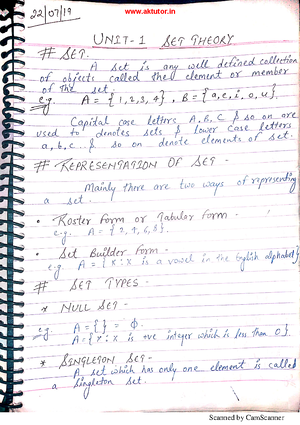 www.aktutor.in
22/07/19
UNIT-1 SET THEORY
# SET.
A set is any well defined collection
of objects called the element or member
of the set.
e.g. A = {1,2,3,4}, B = {a,e,i,o,u}.
Capital case letters A, B, C & so on are
used to denotes sets & lower case letters
a, b, c. & so on denote elements of set.
# REPRESENTATION OF SET -
Mainly there are two ways of representing
a set.
• Roster Form or Tabular Form -
e.g. A = {2,4,6,8}.
• Set Builder Form -
e.g A = {x : x is a vowel in the English alphabet}
# SET TYPES -
* NULL SET -
eg. A = { } = Φ.
A = {x : x is +ve integer which is less than 0}.
* SINGLETON SET -
A set which has only one element is called
a singleton set.
Scanned by CamScanner